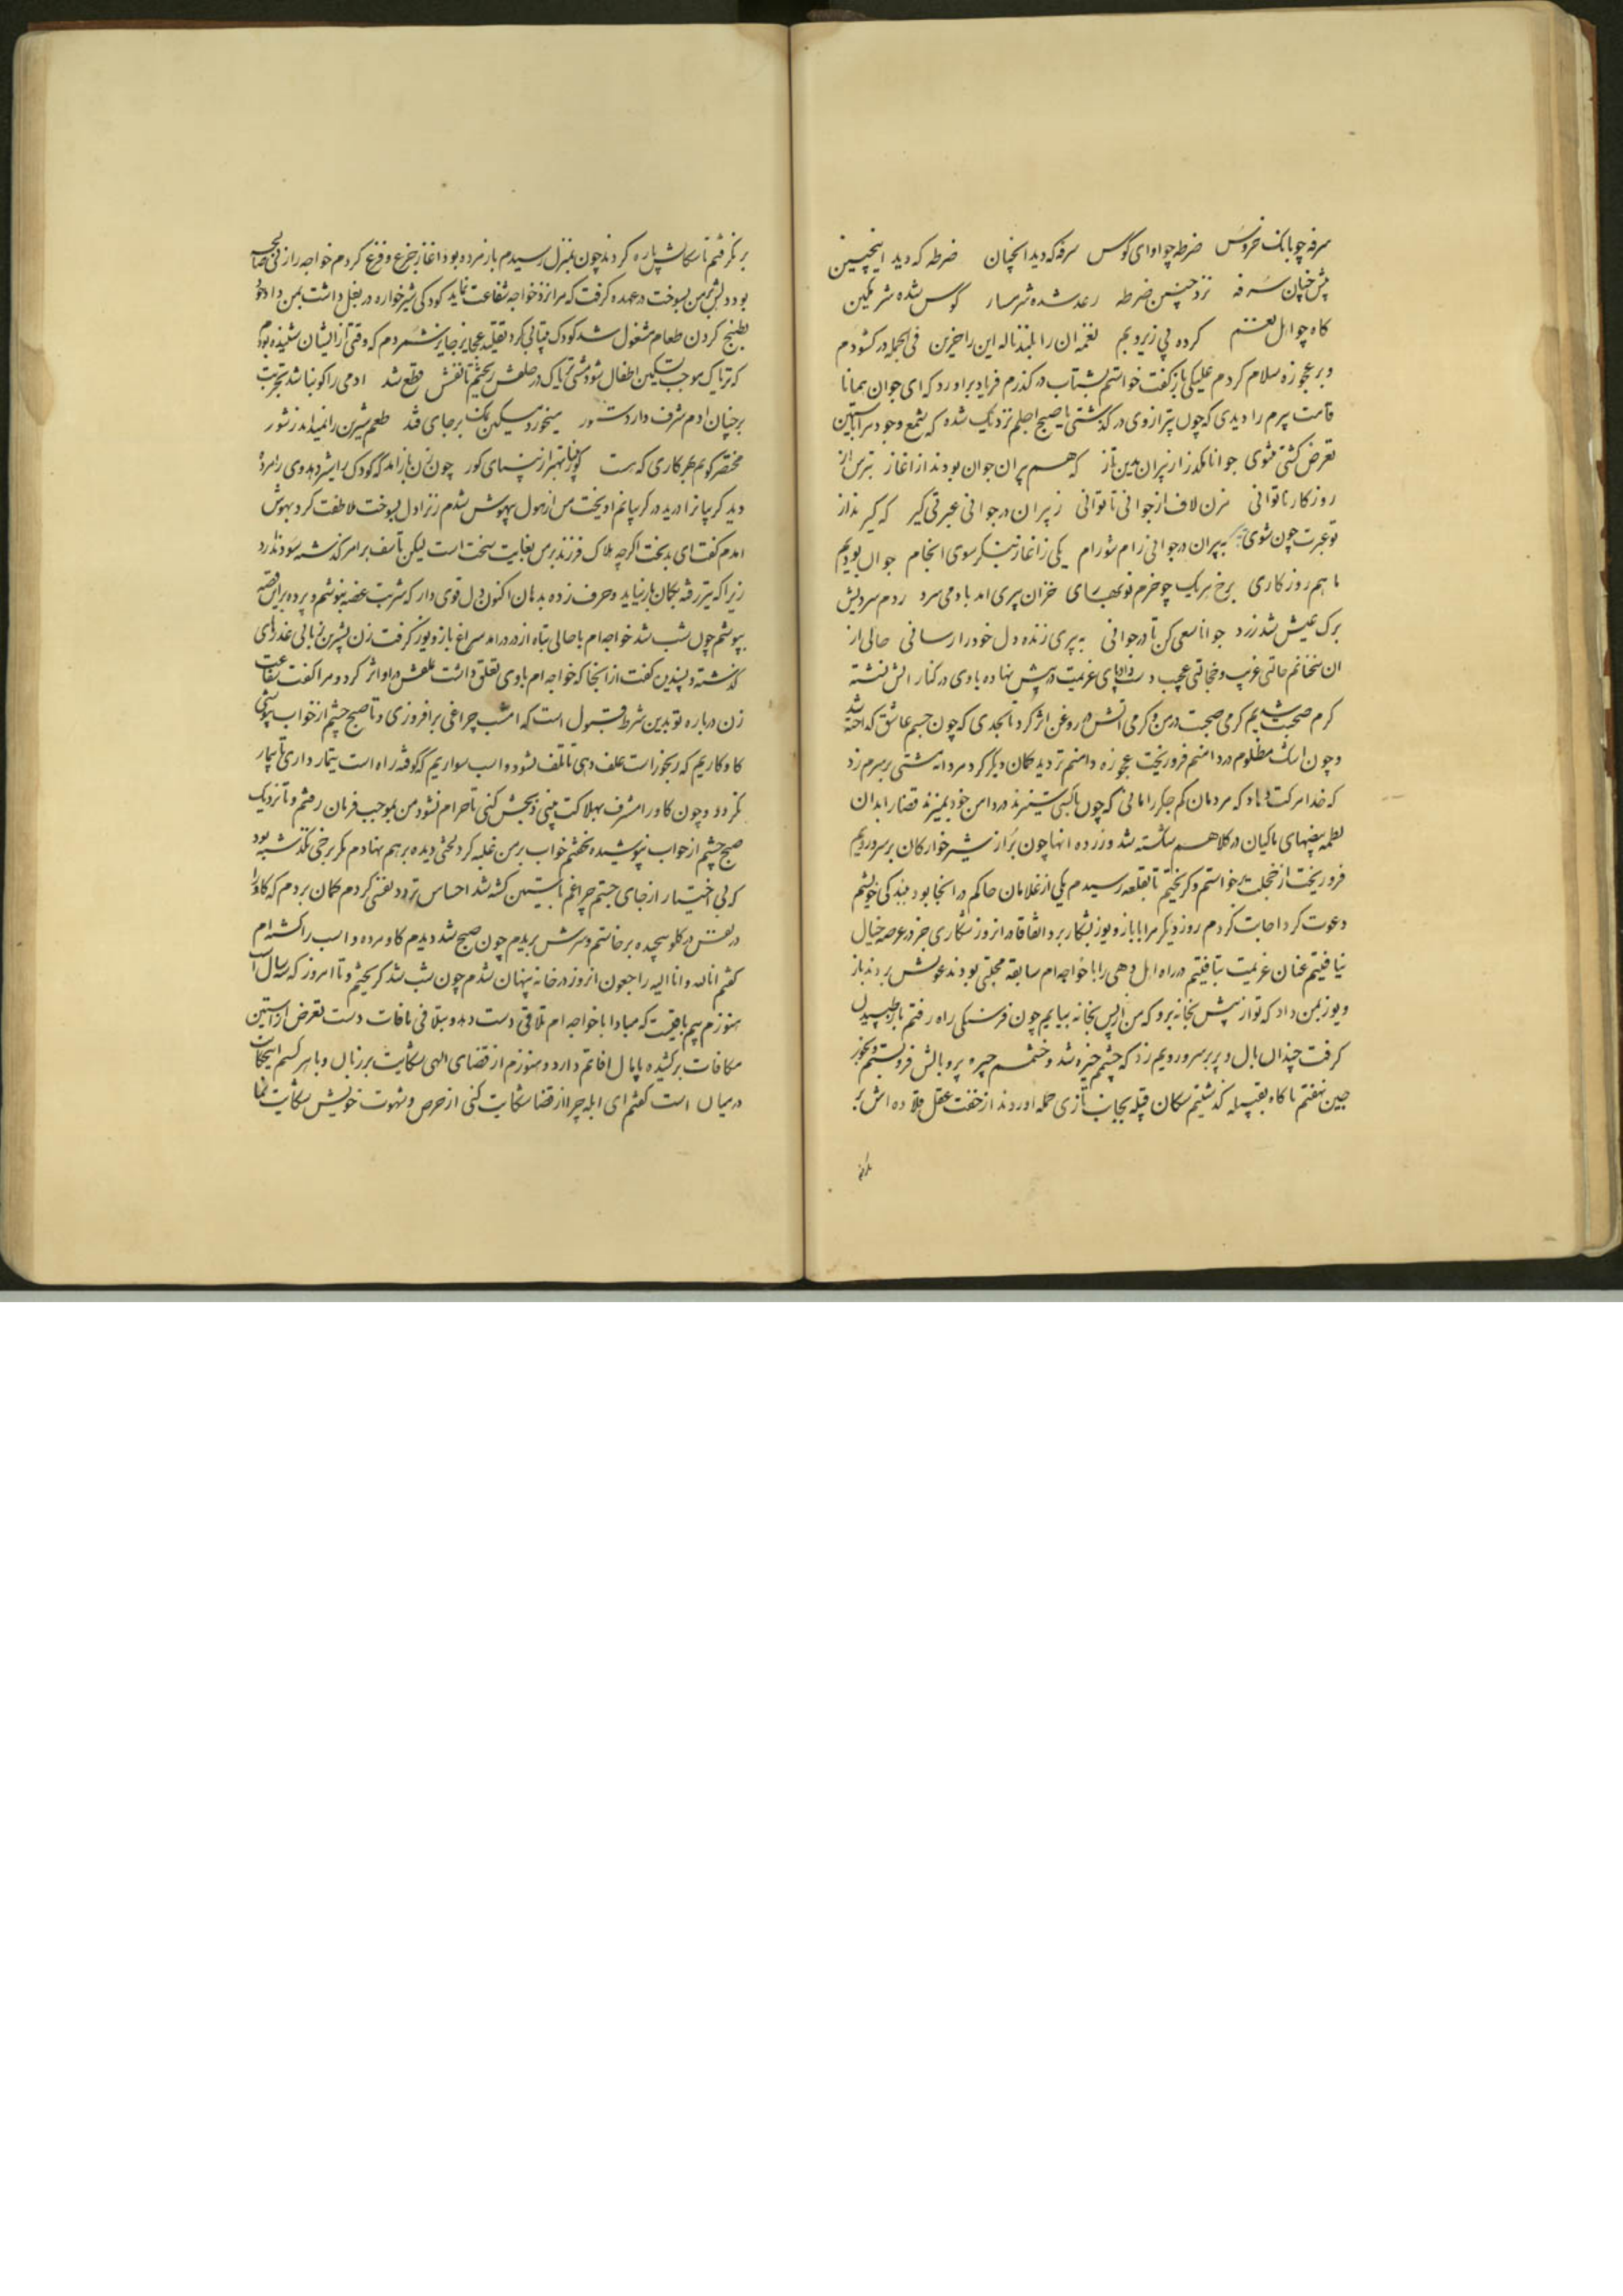 سرفه چو بانک خروس ضرطه چو اوای کوس سرفه که دید انچنان ضرطه که دید اینچنین
پیش چنان سرفه نزد چنین ضرطه رعد شده شرمسار کوس شده شرمکین
کاه چو اهل نغم کرده پی زیر و بم نغمه ان را بلند ناله این را حزین فی الجمله در کشودم
و بر عجوزه سلام کردم علیکی باز کفت خواستم بشتاب در کذرم فریاد براورد که ای جوان همانا
قامت پیرم را دیدی که چون تیر از وی در کذشتی یا صبح اجلم نزدیک شده که بشمع وجودم استین
تعرض کشتی مثنوی جوانا مکذر از پیران بدین ناز که هم پیران جوان بودند از اغاز بترس از
روزکار ناتوانی مزن لاف از جوانی تا توانی ز پیران در جوانی عبرتی کیر که کیرند از
تو عبرت چون شوی پیر به پیران در جوانی رام شو رام یکی ز اغاز بنکر سوی انجام جوان بودیم
ما هم روزکاری برخ هر یک چو خرم نوبهاری خزان پیری امد باد می سرد ز دم سردیش
برک عیش شد زرد جوانا سعی کن تا در جوانی به پیری زنده دل خود را رسانی حالی از
ان سخنانم حالتی غریب و خجالتی عجیب دست داد پای عزیمت در پیش نهاده با وی در کنار اتش نشسته
کرم صحبت شدیم کرمی صحبت در من و کرمی اتش در روغن اثر کرد تا بجدی که چون جسم عاشق کداخته شد
و چون اشک مظلوم در دامنم فرو ریخت عجوزه دامنم تر دید کمان دیکر کرد مردانه مشتی بر سرم زد
که خدا مرکت دهاد که مردمان کم جکر را مانی که چون با کسی ستیزند در دامن خود بمیزند قضا را بدان
لطمه بیضهای ماکیان در کلاهم شکسته شد و زرده انها چون براز شیر خوارکان بر سر و رویم
فرو ریخت از خجلت برخواستم و کریختم تا بقلعه رسیدم یکی از غلامان حاکم در انجا بود ببندکی خویشم
دعوت کرد اجابت کردم روز دیکر مرا با باز و یوز بشکار برد اتفاقا در انروز شکاری جز در عرصه خیال
نیافتیم عنان عزیمت بتافتیم در راه اهل دهی را با خواجه ام سابقه محبتی بود بدعوتش بردند باز
و یوز بمن داد که تو از پیش بخانه برو که من از پس بخانه بیایم چون فرسنکی راه رفتم باز طپیدن
کرفت چندان بال و پر بر سر و رویم زد که چشمم خیره شد و خشمم چیره پر و بالش فرو بستم و بخورجین
جین نهفتم ناکاه بقبیله کذشتیم سکان قبیله بجانب تازی حمله اوردند از خفت عقل قلاده اش بر
بر نکرفتم تا سکانش پاره کردند چون بمنزل رسیدم باز مرده بود اغاز جزع و فزع کردم خواجه را زنی صالحه
بود دلش بر من بسوخت در عهده کرفت که مرا نزد خواجه شفاعت نماید کودکی شیرخواره در بغل داشت بمن داد خود
بطبخ کردن طعام مشغول شد کودک بیتابی کرد بقلیه عجایز جایز نشمردم که وقتی از ایشان شنیده بودم
که تریاک موجب تسکین اطفال شود مشتی تریاک در حلقش ریختم تا نفسش قطع شد ادمی را کو نباشد تجربت
بر چنان ادم شرف دارد ستور میخورد مسکین نمک بر جای قند طعم شیرین را نمیداند ز شور
مختصر کویم بهر کاری که هست کور بینا بهتر از بینای کور چون زن باز امد که کودک را شیر دهد وی را مرده
دید کریبانرا درید در کریبانم اویخت من از هول بیهوش شدم زنرا دل بسوخت ملاطفت کرد بهوش
امدم کفت ای بدبخت اکرچه هلاک فرزند بر من بغایت سخت است لیکن تاسف بر امر کذشته سود ندارد
زیرا که تیر رفته بکمان باز نیاید و حرف زده بدهان اکنون دل قوی دار که شربت غصه بنوشم و پرده بر این قصه
بپوشم چون شب شد خواجه ام با حالی تباه از در درامد سراغ باز و یوز کرفت زن بشیرین زبانی عذرهای
کذشته و پسندین کفت از انجا که خواجه ام با وی تعلق داشت تملقش در او اثر کرد و مرا کفت شفاعت
زن درباره تو بدین شرط قبول است که امشب چراغی برافروزی و تا صبح چشم از خواب بپوشی
کا و کاریم که رنجور است علف دهی تا تلف نشود و اسب سواریم که کوفته راه است تیمار داری تا بیمار
نکردد و چون کاو را مشرف بهلاکت بینی ذبحش کنی تا حرام نشود من بموجب فرمان رفتم و تا نزدیک
صبح چشم از خواب نپوشیده نخفتم خواب بر من غلبه کرد لختی دیده بر هم نهادم مکر برخی نکذشته بود
که بی اختیار از جای جستم چراغم باستین کشته شد احساس تردد نفسی کردم کمان بردم که کاو را
نفس در کلو پیچیده برخاستم و سرش بریدم چون صبح شد دیدم کاو مرده و اسب را کشته ام
کفتم انا لله و انا الیه راجعون انروز در خانه پنهان شدم چون شب شد کریختم و تا امروز که سال است
هنوزم بیم باقیست که مبادا با خواجه ام تلاقی دست دهد و بتلافی مافات دست تعرض از استین
مکافات برکشیده پامال افاتم دارد و هنوزم از قضای الهی شکایت بر زبان و با هر کسم این حکایت
در میان است کفتم ای ابله چرا از قضا شکایت کنی از حرص و شهوت خویش شکایت نما